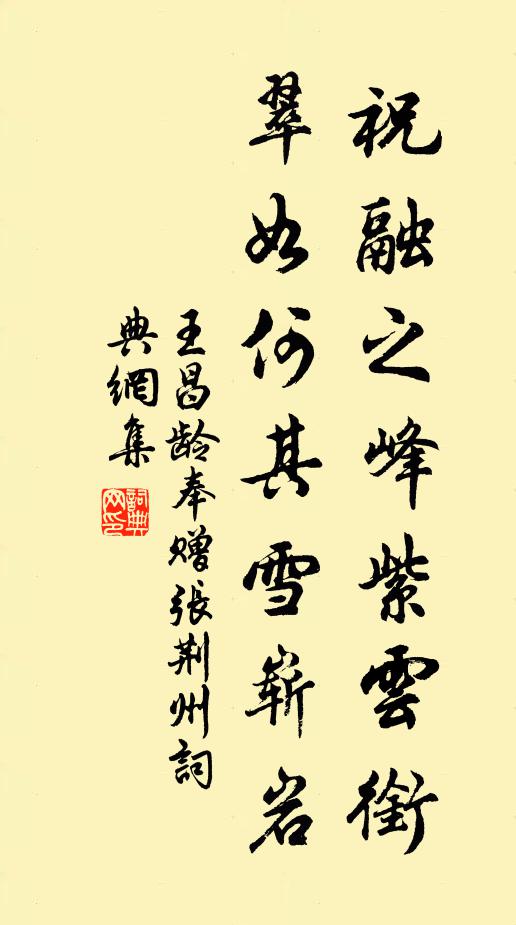 祝融之峰紫雲銜
翠如何其雪嶄岩
王昌龄奉赠張荆州詞
典網集
詞典
网印